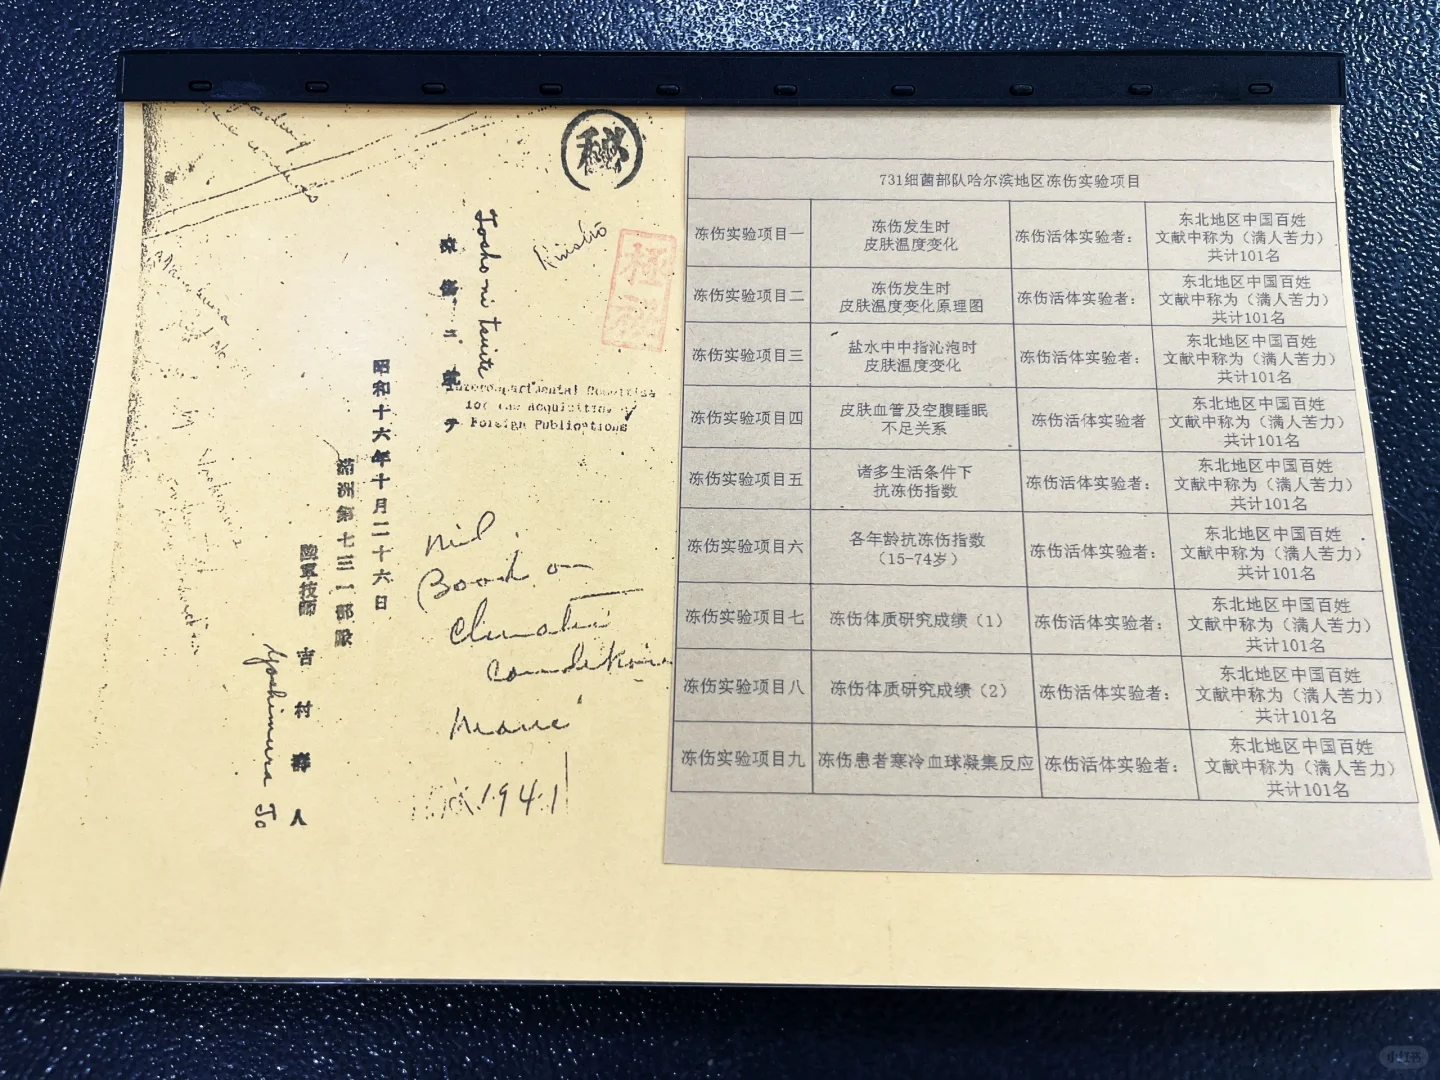 秘
極秘
Toshoni tsuite
凍傷ニ就テ
Interdepartmental Committee
for the Acquisition of
Foreign Publications
昭和十六年十月二十六日
満洲第七三一部隊
陸軍技師 吉村壽人
Yoshimura
Book on
Climatic
conditions
1941
731细菌部队哈尔滨地区冻伤实验项目
冻伤实验项目一
冻伤发生时
皮肤温度变化
冻伤活体实验者：
东北地区中国百姓
文献中称为（满人苦力）
共计101名
冻伤实验项目二
冻伤发生时
皮肤温度变化原理图
冻伤活体实验者：
东北地区中国百姓
文献中称为（满人苦力）
共计101名
冻伤实验项目三
盐水中中指沁泡时
皮肤温度变化
冻伤活体实验者：
东北地区中国百姓
文献中称为（满人苦力）
共计101名
冻伤实验项目四
皮肤血管及空腹睡眠
不足关系
冻伤活体实验者
东北地区中国百姓
文献中称为（满人苦力）
共计101名
冻伤实验项目五
诸多生活条件下
抗冻伤指数
冻伤活体实验者：
东北地区中国百姓
文献中称为（满人苦力）
共计101名
冻伤实验项目六
各年龄抗冻伤指数
（15-74岁）
冻伤活体实验者：
东北地区中国百姓
文献中称为（满人苦力）
共计101名
冻伤实验项目七
冻伤体质研究成绩（1）
冻伤活体实验者：
东北地区中国百姓
文献中称为（满人苦力）
共计101名
冻伤实验项目八
冻伤体质研究成绩（2）
冻伤活体实验者：
东北地区中国百姓
文献中称为（满人苦力）
共计101名
冻伤实验项目九
冻伤患者寒冷血球凝集反应
冻伤活体实验者：
东北地区中国百姓
文献中称为（满人苦力）
共计101名
小红书